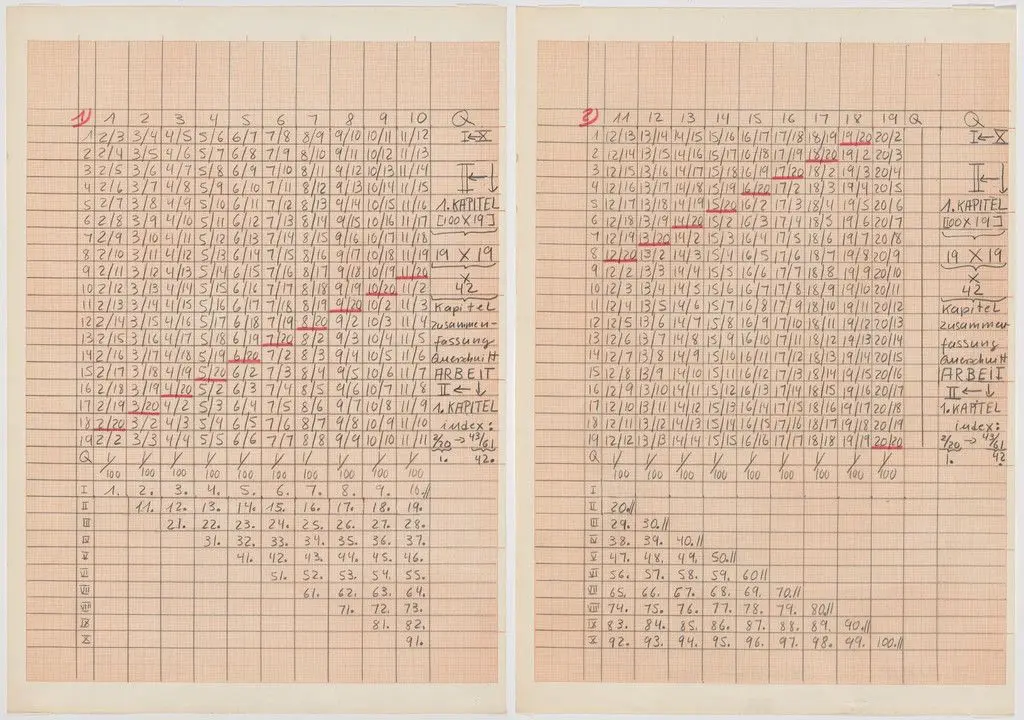 1) 1 2 3 4 5 6 7 8 9 10 Q
1 2/3 3/4 4/5 5/6 6/7 7/8 8/9 9/10 10/11 11/12 I←X
2 2/4 3/5 4/6 5/7 6/8 7/9 8/10 9/11 10/12 11/13
3 2/5 3/6 4/7 5/8 6/9 7/10 8/11 9/12 10/13 11/14 II←↓
4 2/6 3/7 4/8 5/9 6/10 7/11 8/12 9/13 10/14 11/15
5 2/7 3/8 4/9 5/10 6/11 7/12 8/13 9/14 10/15 11/16 1. KAPITEL
6 2/8 3/9 4/10 5/11 6/12 7/13 8/14 9/15 10/16 11/17 [100X19]
7 2/9 3/10 4/11 5/12 6/13 7/14 8/15 9/16 10/17 11/18
8 2/10 3/11 4/12 5/13 6/14 7/15 8/16 9/17 10/18 11/19 19 X 19
9 2/11 3/12 4/13 5/14 6/15 7/16 8/17 9/18 10/19 11/20 X
10 2/12 3/13 4/14 5/15 6/16 7/17 8/18 9/19 10/20 11/2 42
11 2/13 3/14 4/15 5/16 6/17 7/18 8/19 9/20 10/2 11/3 Kapitel
12 2/14 3/15 4/16 5/17 6/18 7/19 8/20 9/2 10/3 11/4 zusammen-
13 2/15 3/16 4/17 5/18 6/19 7/20 8/2 9/3 10/4 11/5 fassung
14 2/16 3/17 4/18 5/19 6/20 7/2 8/3 9/4 10/5 11/6 Querschnitt
15 2/17 3/18 4/19 5/20 6/2 7/3 8/4 9/5 10/6 11/7 ARBEIT
16 2/18 3/19 4/20 5/2 6/3 7/4 8/5 9/6 10/7 11/8 II←↓
17 2/19 3/20 4/2 5/3 6/4 7/5 8/6 9/7 10/8 11/9 1. KAPITEL
18 2/20 3/2 4/3 5/4 6/5 7/6 8/7 9/8 10/9 11/10 index:
19 2/2 3/3 4/4 5/5 6/6 7/7 8/8 9/9 10/10 11/11 2/20→43/61
Q 1/100 1/100 1/100 1/100 1/100 1/100 1/100 1/100 1/100 1/100 1. 42.
I 1. 2. 3. 4. 5. 6. 7. 8. 9. 10.//
II 11. 12. 13. 14. 15. 16. 17. 18. 19.
III 21. 22. 23. 24. 25. 26. 27. 28.
IV 31. 32. 33. 34. 35. 36. 37.
V 41. 42. 43. 44. 45. 46.
VI 51. 52. 53. 54. 55.
VII 61. 62. 63. 64.
VIII 71. 72. 73.
IX 81. 82.
X 91.
2) 11 12 13 14 15 16 17 18 19 Q Q
1 12/13 13/14 14/15 15/16 16/17 17/18 18/19 19/20 20/2 I←X
2 12/14 13/15 14/16 15/17 16/18 17/19 18/20 19/2 20/3
3 12/15 13/16 14/17 15/18 16/19 17/20 18/2 19/3 20/4 II←↓
4 12/16 13/17 14/18 15/19 16/20 17/2 18/3 19/4 20/5
5 12/17 13/18 14/19 15/20 16/2 17/3 18/4 19/5 20/6 1. KAPITEL
6 12/18 13/19 14/20 15/2 16/3 17/4 18/5 19/6 20/7 [100X19]
7 12/19 13/20 14/2 15/3 16/4 17/5 18/6 19/7 20/8
8 12/20 13/2 14/3 15/4 16/5 17/6 18/7 19/8 20/9 19 X 19
9 12/2 13/3 14/4 15/5 16/6 17/7 18/8 19/9 20/10 X
10 12/3 13/4 14/5 15/6 16/7 17/8 18/9 19/10 20/11 42
11 12/4 13/5 14/6 15/7 16/8 17/9 18/10 19/11 20/12 Kapitel
12 12/5 13/6 14/7 15/8 16/9 17/10 18/11 19/12 20/13 zusammen-
13 12/6 13/7 14/8 15/9 16/10 17/11 18/12 19/13 20/14 fassung
14 12/7 13/8 14/9 15/10 16/11 17/12 18/13 19/14 20/15 Querschnitt
15 12/8 13/9 14/10 15/11 16/12 17/13 18/14 19/15 20/16 ARBEIT
16 12/9 13/10 14/11 15/12 16/13 17/14 18/15 19/16 20/17 II←↓
17 12/10 13/11 14/12 15/13 16/14 17/15 18/16 19/17 20/18 1. KAPITEL
18 12/11 13/12 14/13 15/14 16/15 17/16 18/17 19/18 20/19 index:
19 12/12 13/13 14/14 15/15 16/16 17/17 18/18 19/19 20/20 2/20→43/61
Q 1/100 1/100 1/100 1/100 1/100 1/100 1/100 1/100 1/100 1. 42.
I
II 20.//
III 29. 30.//
IV 38. 39. 40.//
V 47. 48. 49. 50.//
VI 56. 57. 58. 59. 60//
VII 65. 66. 67. 68. 69. 70.//
VIII 74. 75. 76. 77. 78. 79. 80.//
IX 83. 84. 85. 86. 87. 88. 89. 90.//
X 92. 93. 94. 95. 96. 97. 98. 99. 100.//